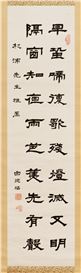 早蛩啼復歇殘燈滅又明
隔窗知夜雨芭蕉先有聲
先生雅屬